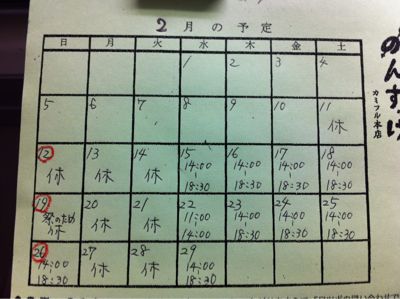 2月の予定
日 月 火 水 木 金 土
1 2 3 4
5 6 7 8 9 10 11
休
12 13 14 15 16 17 18
休 休 休 14:00 14:00 14:00 14:00
18:30 18:30 18:30 18:30
19 20 21 22 23 24 25
祭のため 休 休 11:00 14:00 14:00 14:00
休 14:00 18:30 18:30 18:30
26 27 28 29
14:00 休 休 14:00
18:30 18:30
のんすけ
カミフル本店